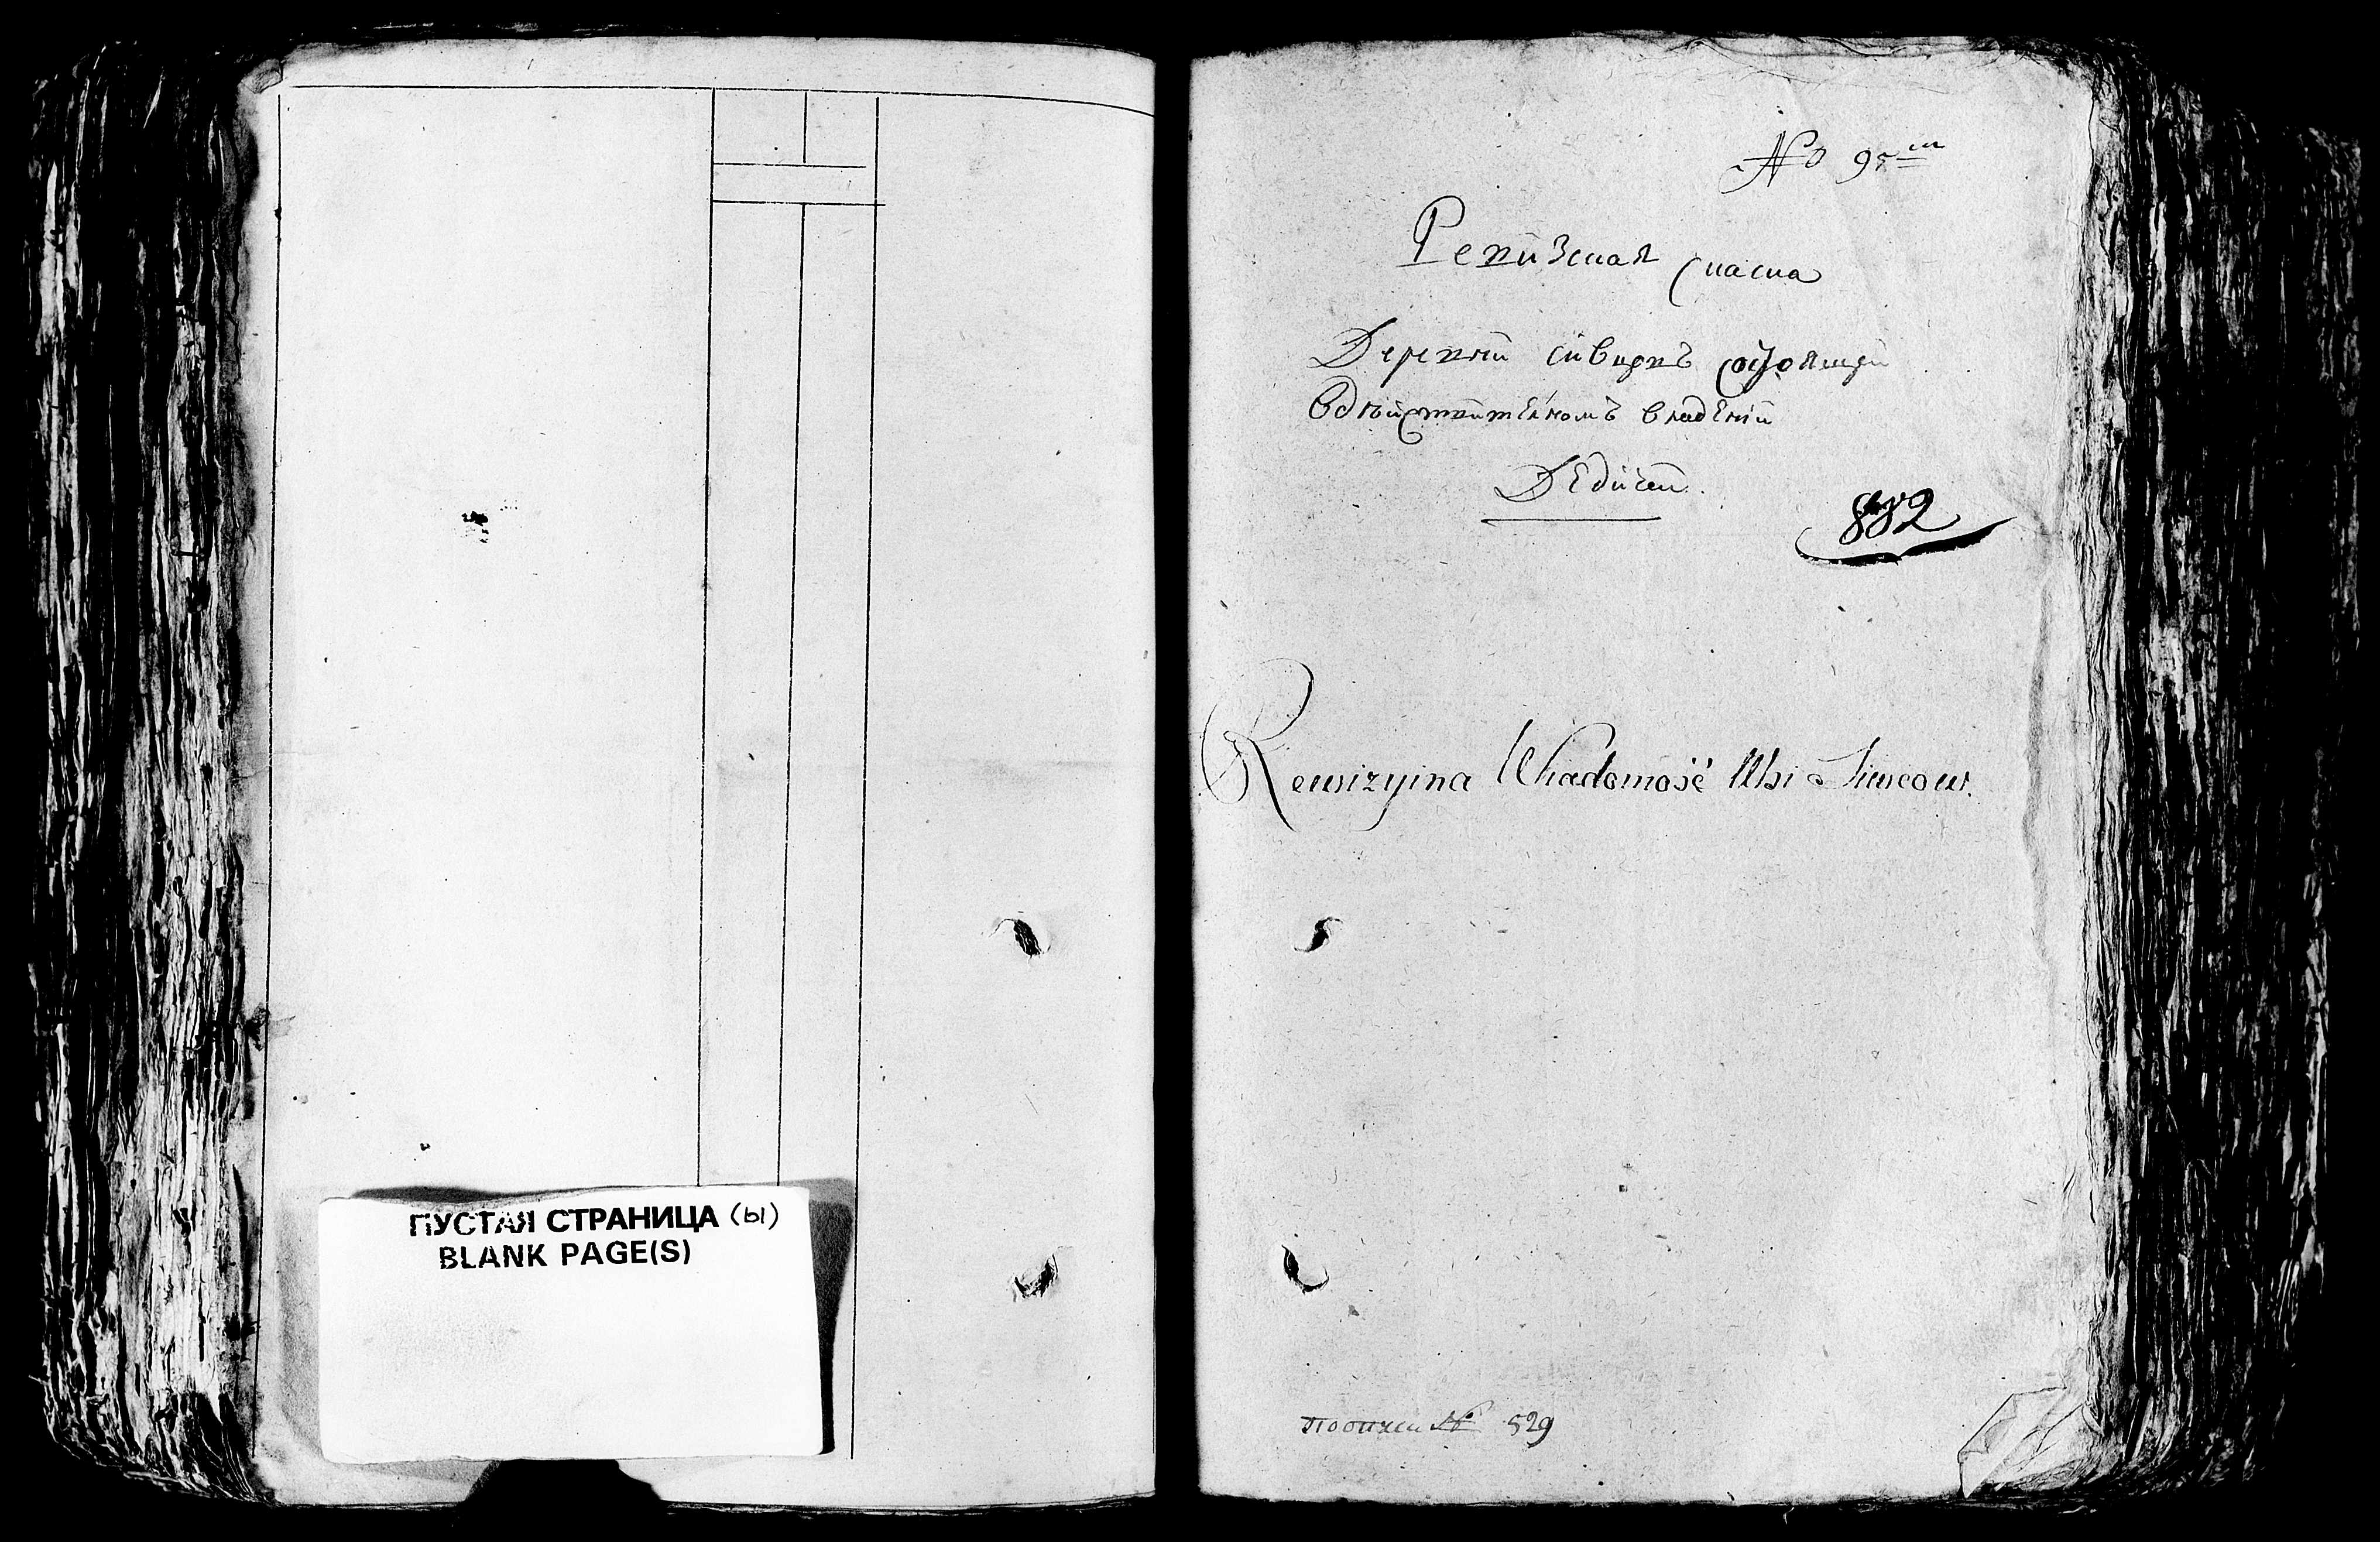 ПУСТАЯ СТРАНИЦА (ы)
BLANK PAGE(S)
№ 95
Ревизская сказка
Деревни Сивцовъ состоящей
в действительномъ владении
882
Rewizyina Wiadomość Wsi Siwcow.
по описи № 529